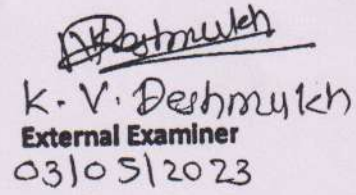 K. V. Deshmukh
External Examiner
03/05/2023